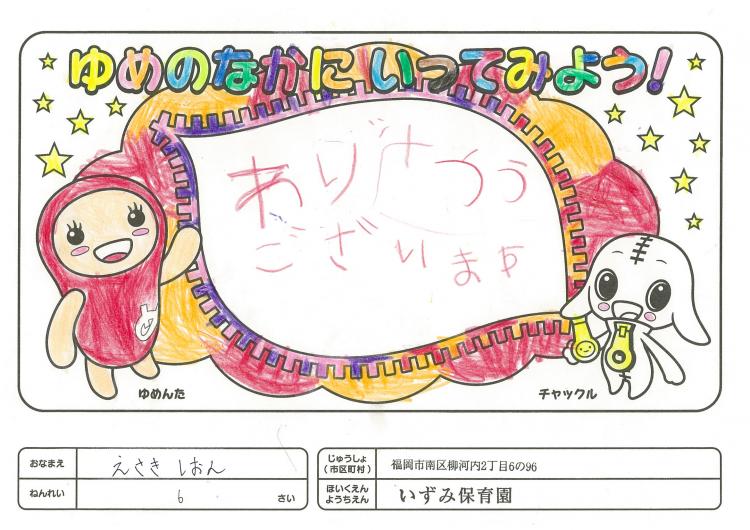 ゆめのなかにいってみよう!
ありがとう
ございます
ゆめんた
チャックル
おなまえ えさき しおん
ねんれい 6 さい
じゅうしょ(市区町村) 福岡市南区柳河内2丁目6の96
ほいくえん ようちえん いずみ保育園